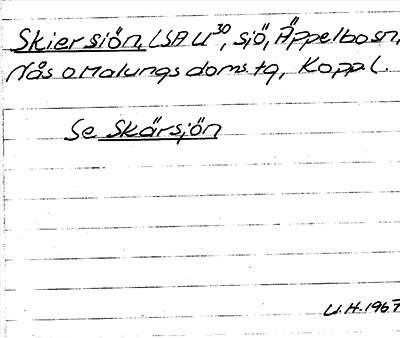 Skiersiön, LSA U30, sjö, Äppelbo sn,
Nås o Malungs doms tg, Koppl.
Se Skärsjön
U.H. 1967